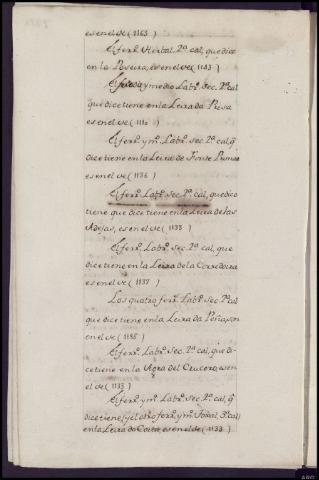 es en el de (1163)
El ferr.º Herbal 2.ª cal, que dice
en la Pereira, es en el de (1183)
El ferr.º y medio Labr.º Sec. 2.ª cal
que dice tiene en la Leira da Presa
es en el de (1110)
El ferr.º y m.º Labr.º Sec. 2.ª cal, q̃
dice tiene en la Leira de
es en el de (1136)
El ferr.º Labr.º Sec. 2.ª cal, que dice
tiene que dice tiene en la Leira de las
es en el de (1133)
El ferr.º Labr.º Sec. 2.ª cal, que
dice tiene en la Leira de la Corredoira
es en el de (1137)
Los quatro ferr.º Labr.º Sec. 2.ª cal
que dice tiene en la Leira da Peña, son
en el de (1185)
El ferr.º Labr.º Sec. 2.ª cal, que di-
ce tiene en la Agra del Crucero, es en
el de (1133)
El ferr.º y m.º Labr.º Sec. 2.ª cal, q̃
dice tiene (y el otro ferr.º y m.º 3.ª cal)
en la Leira da Costa es en el de (1138)